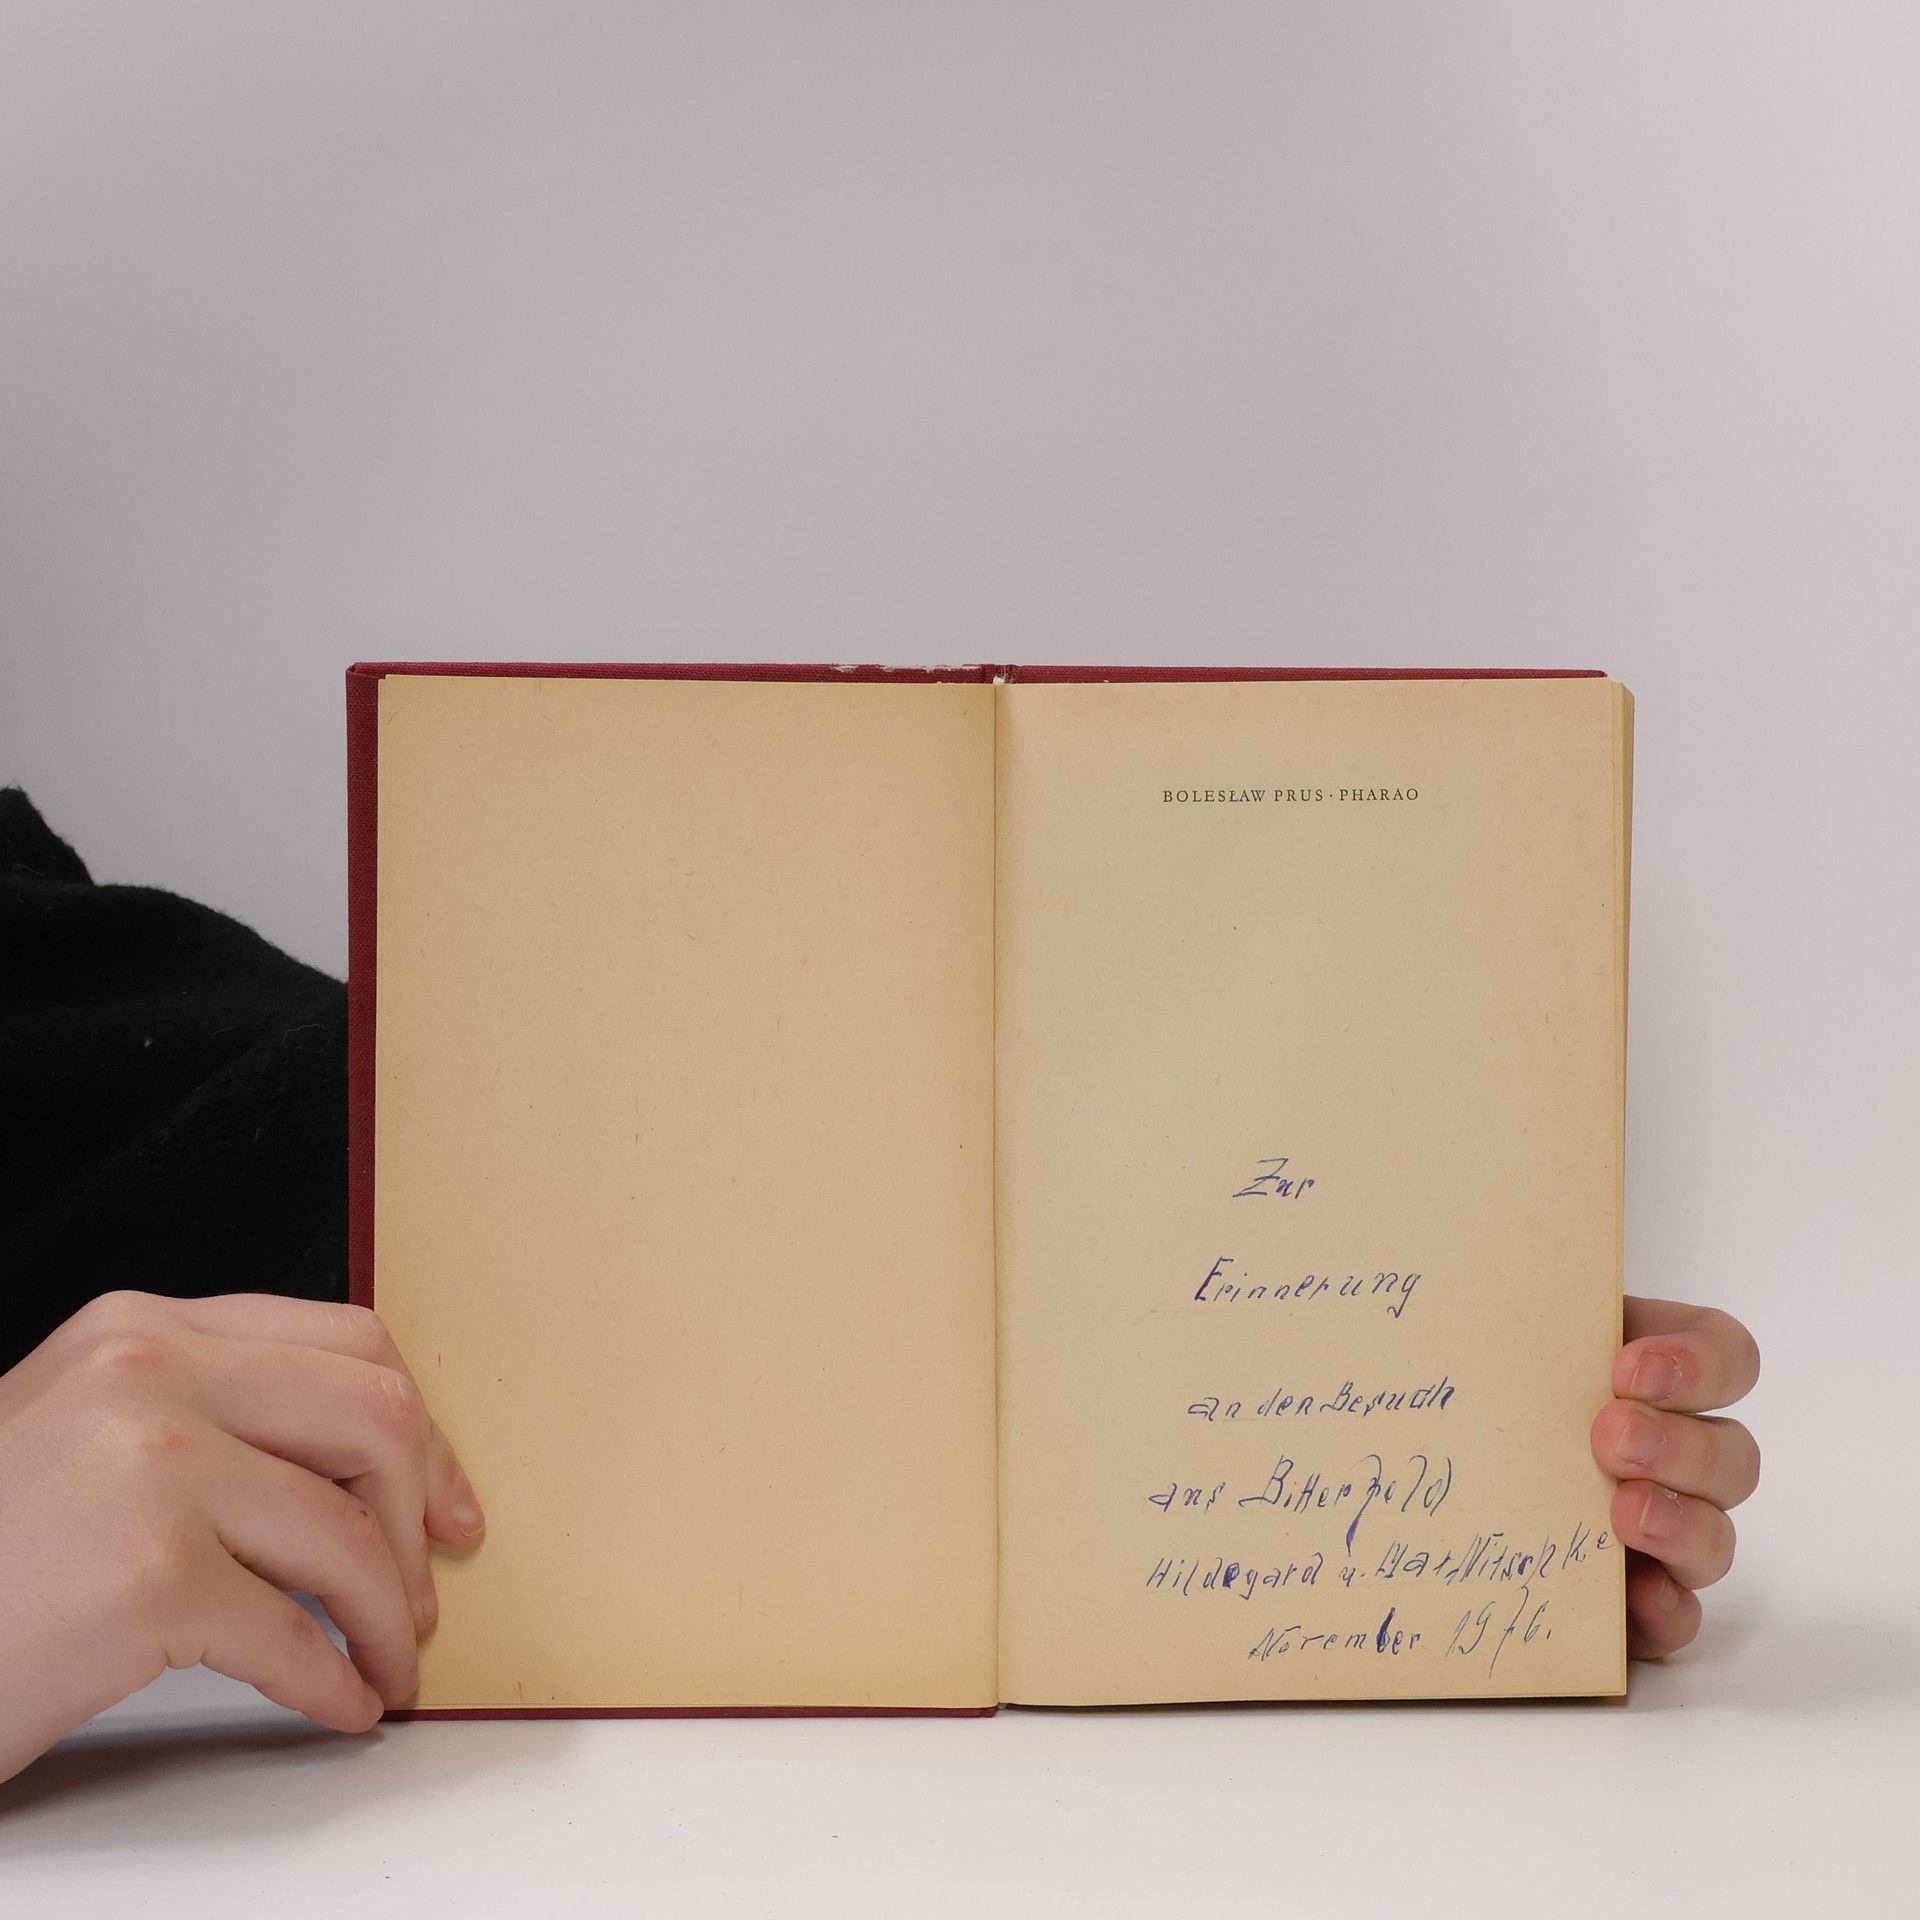 BOLESŁAW PRUS · PHARAO
Zur
Erinnerung
an den Besuch
aus Bitterfeld
Hildegard u.
November 1976.